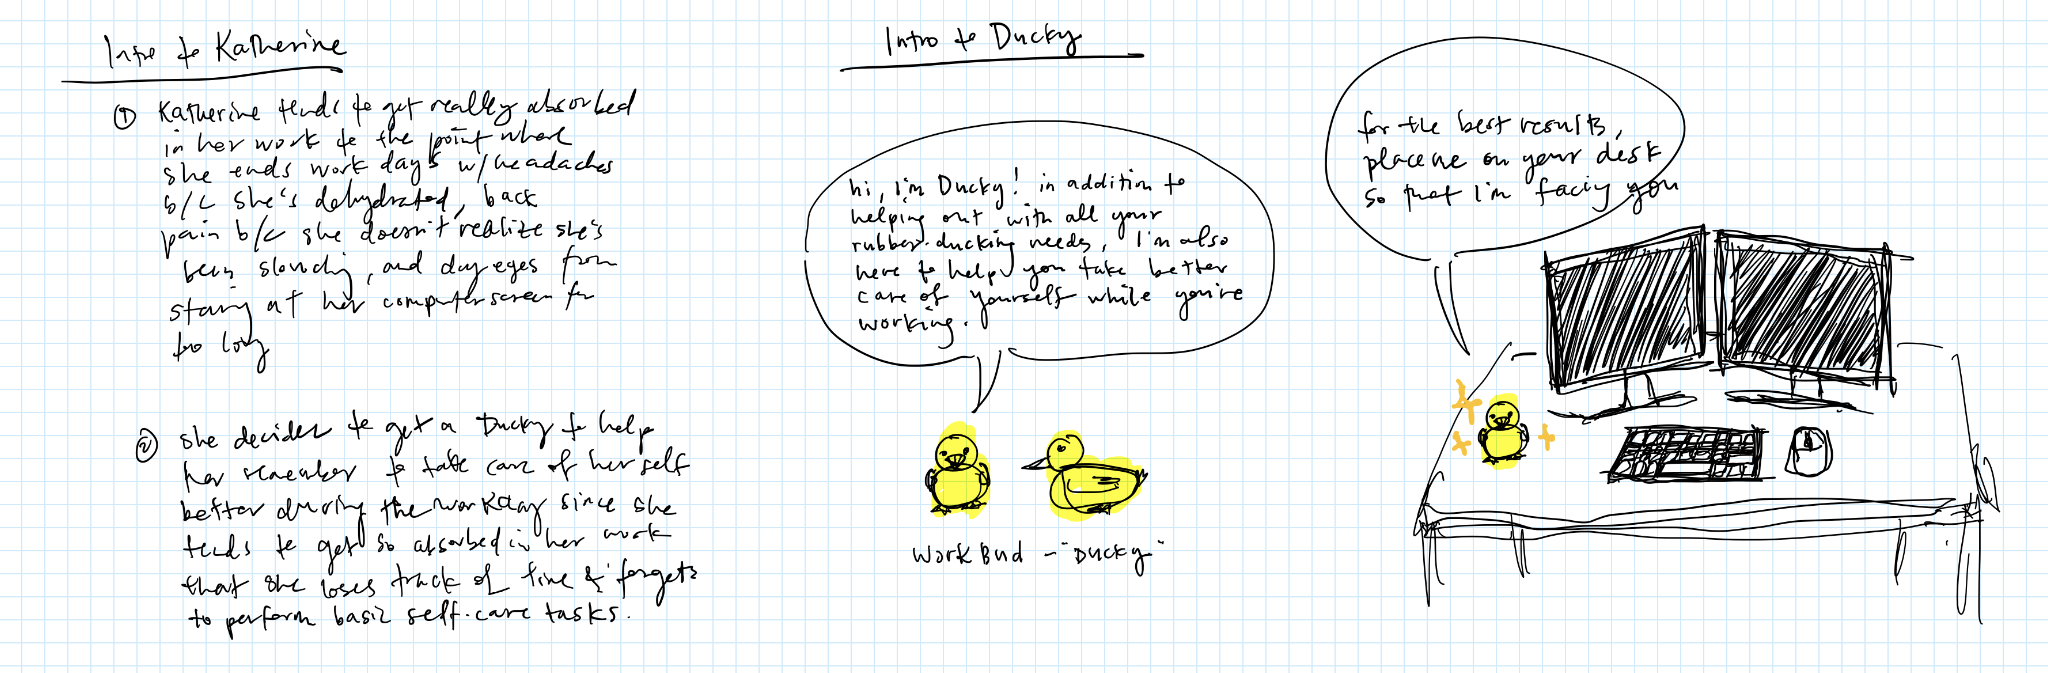 Intro to Katherine
① Katherine tends to get really absorbed
in her work to the point where
she ends work days w/ headaches
b/c she's dehydrated, back
pain b/c she doesn't realize she's
been slouching, and dry eyes from
staring at her computer screen for
too long
② she decides to get a Ducky to help
her remember to take care of herself
better during the workday since she
tends to get so absorbed in her work
that she loses track of time & forgets
to perform basic self-care tasks.
Intro to Ducky
hi, I'm Ducky! in addition to
helping out with all your
rubber-ducking needs, I'm also
here to help you take better
care of yourself while you're
working.
Work Bud - "Ducky"
for the best results,
place me on your desk
so that I'm facing you